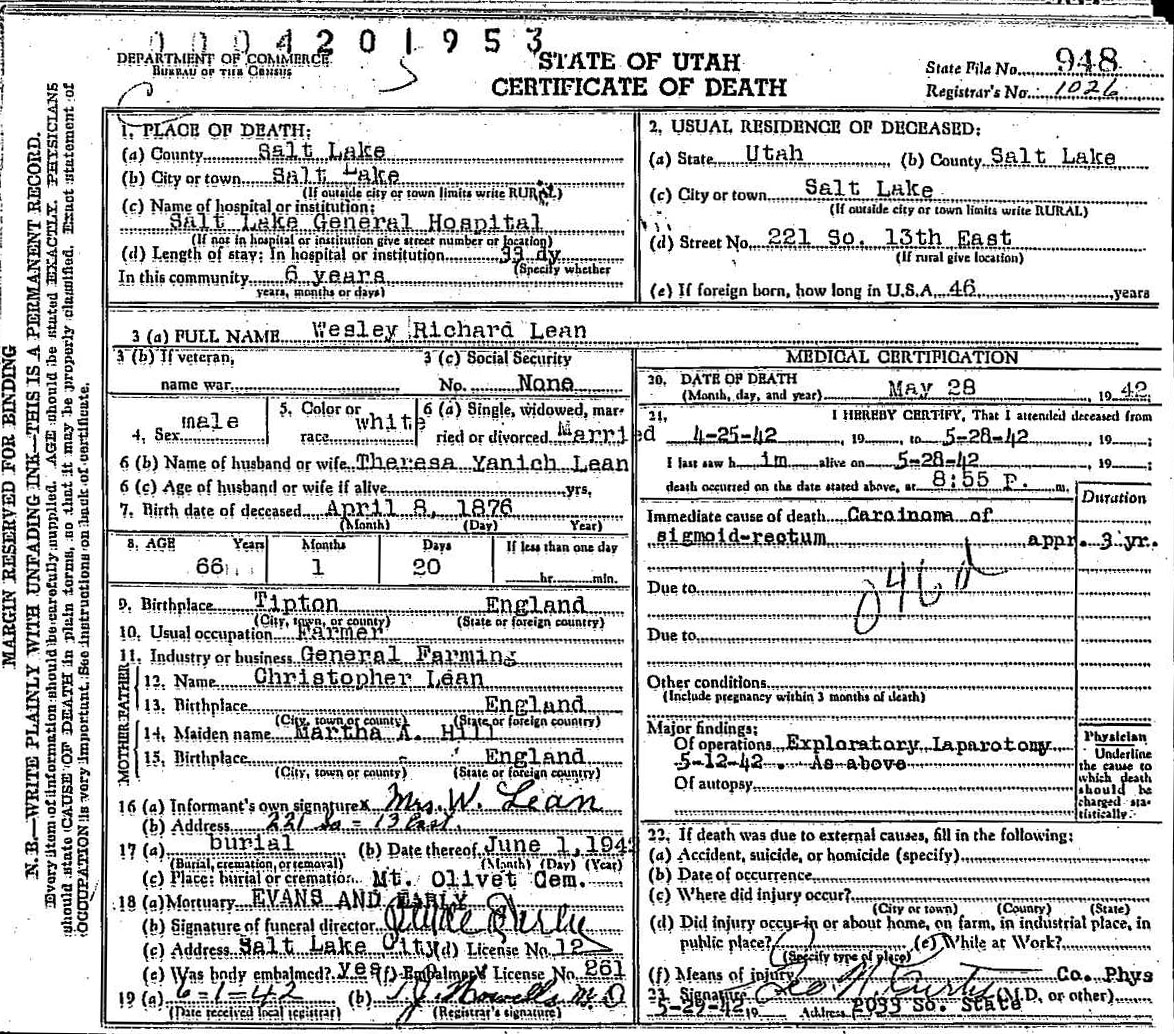 0004201953
DEPARTMENT OF COMMERCE
BUREAU OF THE CENSUS
STATE OF UTAH
CERTIFICATE OF DEATH
State File No. 948
Registrar's No. 1026
MARGIN RESERVED FOR BINDING
N. B.—WRITE PLAINLY WITH UNFADING INK—THIS IS A PERMANENT RECORD.
Every item of information should be carefully supplied. AGE should be stated EXACTLY. PHYSICIANS
should state CAUSE OF DEATH in plain terms, so that it may be properly classified. Exact statement of
OCCUPATION is very important. See instructions on back of certificate.
1. PLACE OF DEATH:
(a) County Salt Lake
(b) City or town Salt Lake
(If outside city or town limits write RURAL)
(c) Name of hospital or institution:
Salt Lake General Hospital
(If not in hospital or institution give street number or location)
(d) Length of stay: In hospital or institution dy
(Specify whether
In this community 6 years
years, months or days)
2. USUAL RESIDENCE OF DECEASED:
(a) State Utah (b) County Salt Lake
(c) City or town Salt Lake
(If outside city or town limits write RURAL)
(d) Street No. 221 So. 13th East
(If rural give location)
(e) If foreign born, how long in U.S.A. 46 years
3 (a) FULL NAME Wesley Richard Lean
3 (b) If veteran, 3 (c) Social Security
name war No. None
4. Sex male 5. Color or race white 6 (a) Single, widowed, married or divorced Married
6 (b) Name of husband or wife Theresa Yanich Lean
6 (c) Age of husband or wife if alive yrs.
7. Birth date of deceased April 8, 1876
(Month) (Day) Year)
8. AGE Years Months Days If less than one day
66 1 20 hr. min.
9. Birthplace Tipton England
(City, town, or county) (State or foreign country)
10. Usual occupation Farmer
11. Industry or business General Farming
FATHER
12. Name Christopher Lean
13. Birthplace England
(City, town or county) (State or foreign country)
MOTHER
14. Maiden name Martha A. Hill
15. Birthplace England
(City, town or county) (State or foreign country)
16 (a) Informant's own signature x Mrs. W. Lean
(b) Address 221 So = 13 East.
17 (a) burial (b) Date thereof June 1, 1942
(Burial, cremation, or removal) (Month) (Day) (Year)
(c) Place: burial or cremation Mt. Olivet Cem.
18 (a) Mortuary EVANS AND EARLY
(b) Signature of funeral director
(c) Address Salt Lake City (d) License No. 12
(e) Was body embalmed? yes (f) Embalmer License No. 261
19 (a) 6-1-42 (b) T.J. Howells M.D
(Date received local registrar) (Registrar's signature)
MEDICAL CERTIFICATION
20. DATE OF DEATH
(Month, day, and year) May 28 19 42
21. I HEREBY CERTIFY, That I attended deceased from
4-25-42 19 , to 5-28-42 19 ;
I last saw h im alive on 5-28-42 19 ;
death occurred on the date stated above, at 8:55 P. m.
Duration
Immediate cause of death Carcinoma of
sigmoid-rectum appr. 3 yr.
Due to 046d
Due to
Other conditions
(Include pregnancy within 3 months of death)
Major findings:
Of operations Exploratory Laparotomy
5-12-42 . As above
Of autopsy
Physician
Underline
the cause to
which death
should be
charged sta-
tistically.
22. If death was due to external causes, fill in the following:
(a) Accident, suicide, or homicide (specify)
(b) Date of occurrence
(c) Where did injury occur?
(City or town) (County) (State)
(d) Did injury occur in or about home, on farm, in industrial place, in
public place? (e) While at Work?
(Specify type of place)
(f) Means of injury Co. Phys
23. Signature Geo N. Curtis (M.D. or other)
5-29-42 19 Address 2033 So. State